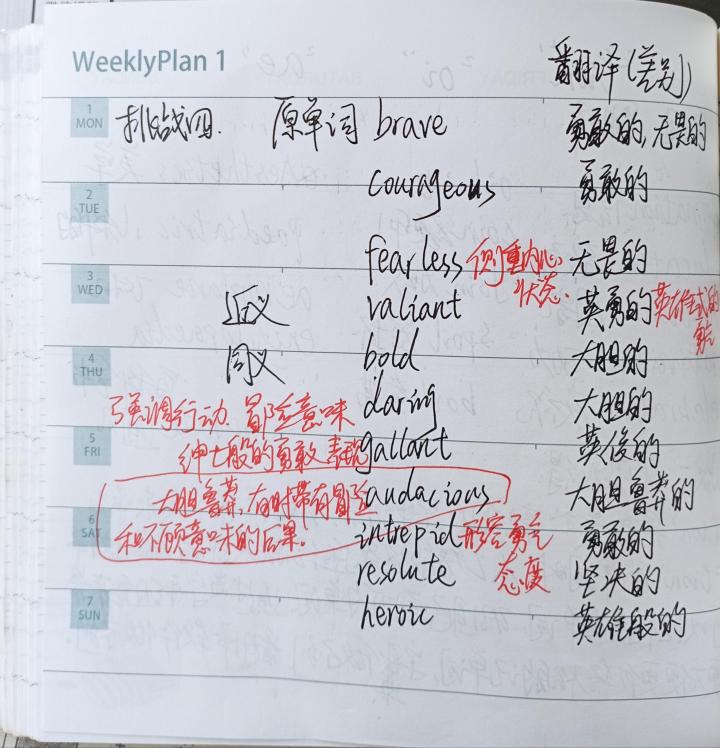 WeeklyPlan 1
翻译(差别)
1 MON 挑战四. 原单词 brave 勇敢的,无畏的
courageous 勇敢的
2 TUE
fearless 侧重内心状态. 无畏的
3 WED
近义 valiant 英勇的 英雄式的勇气
4 THU
同义 bold 大胆的
强调行动、冒险意味 daring 大胆的
5 FRI
绅士般的勇敢表现 gallant 英俊的
大胆鲁莽,有时带有冒险 audacious 大胆鲁莽的
6 SAT
和不顾意味的后果. intrepid 形容勇气态度 勇敢的
resolute 坚决的
7 SUN
heroic 英雄般的